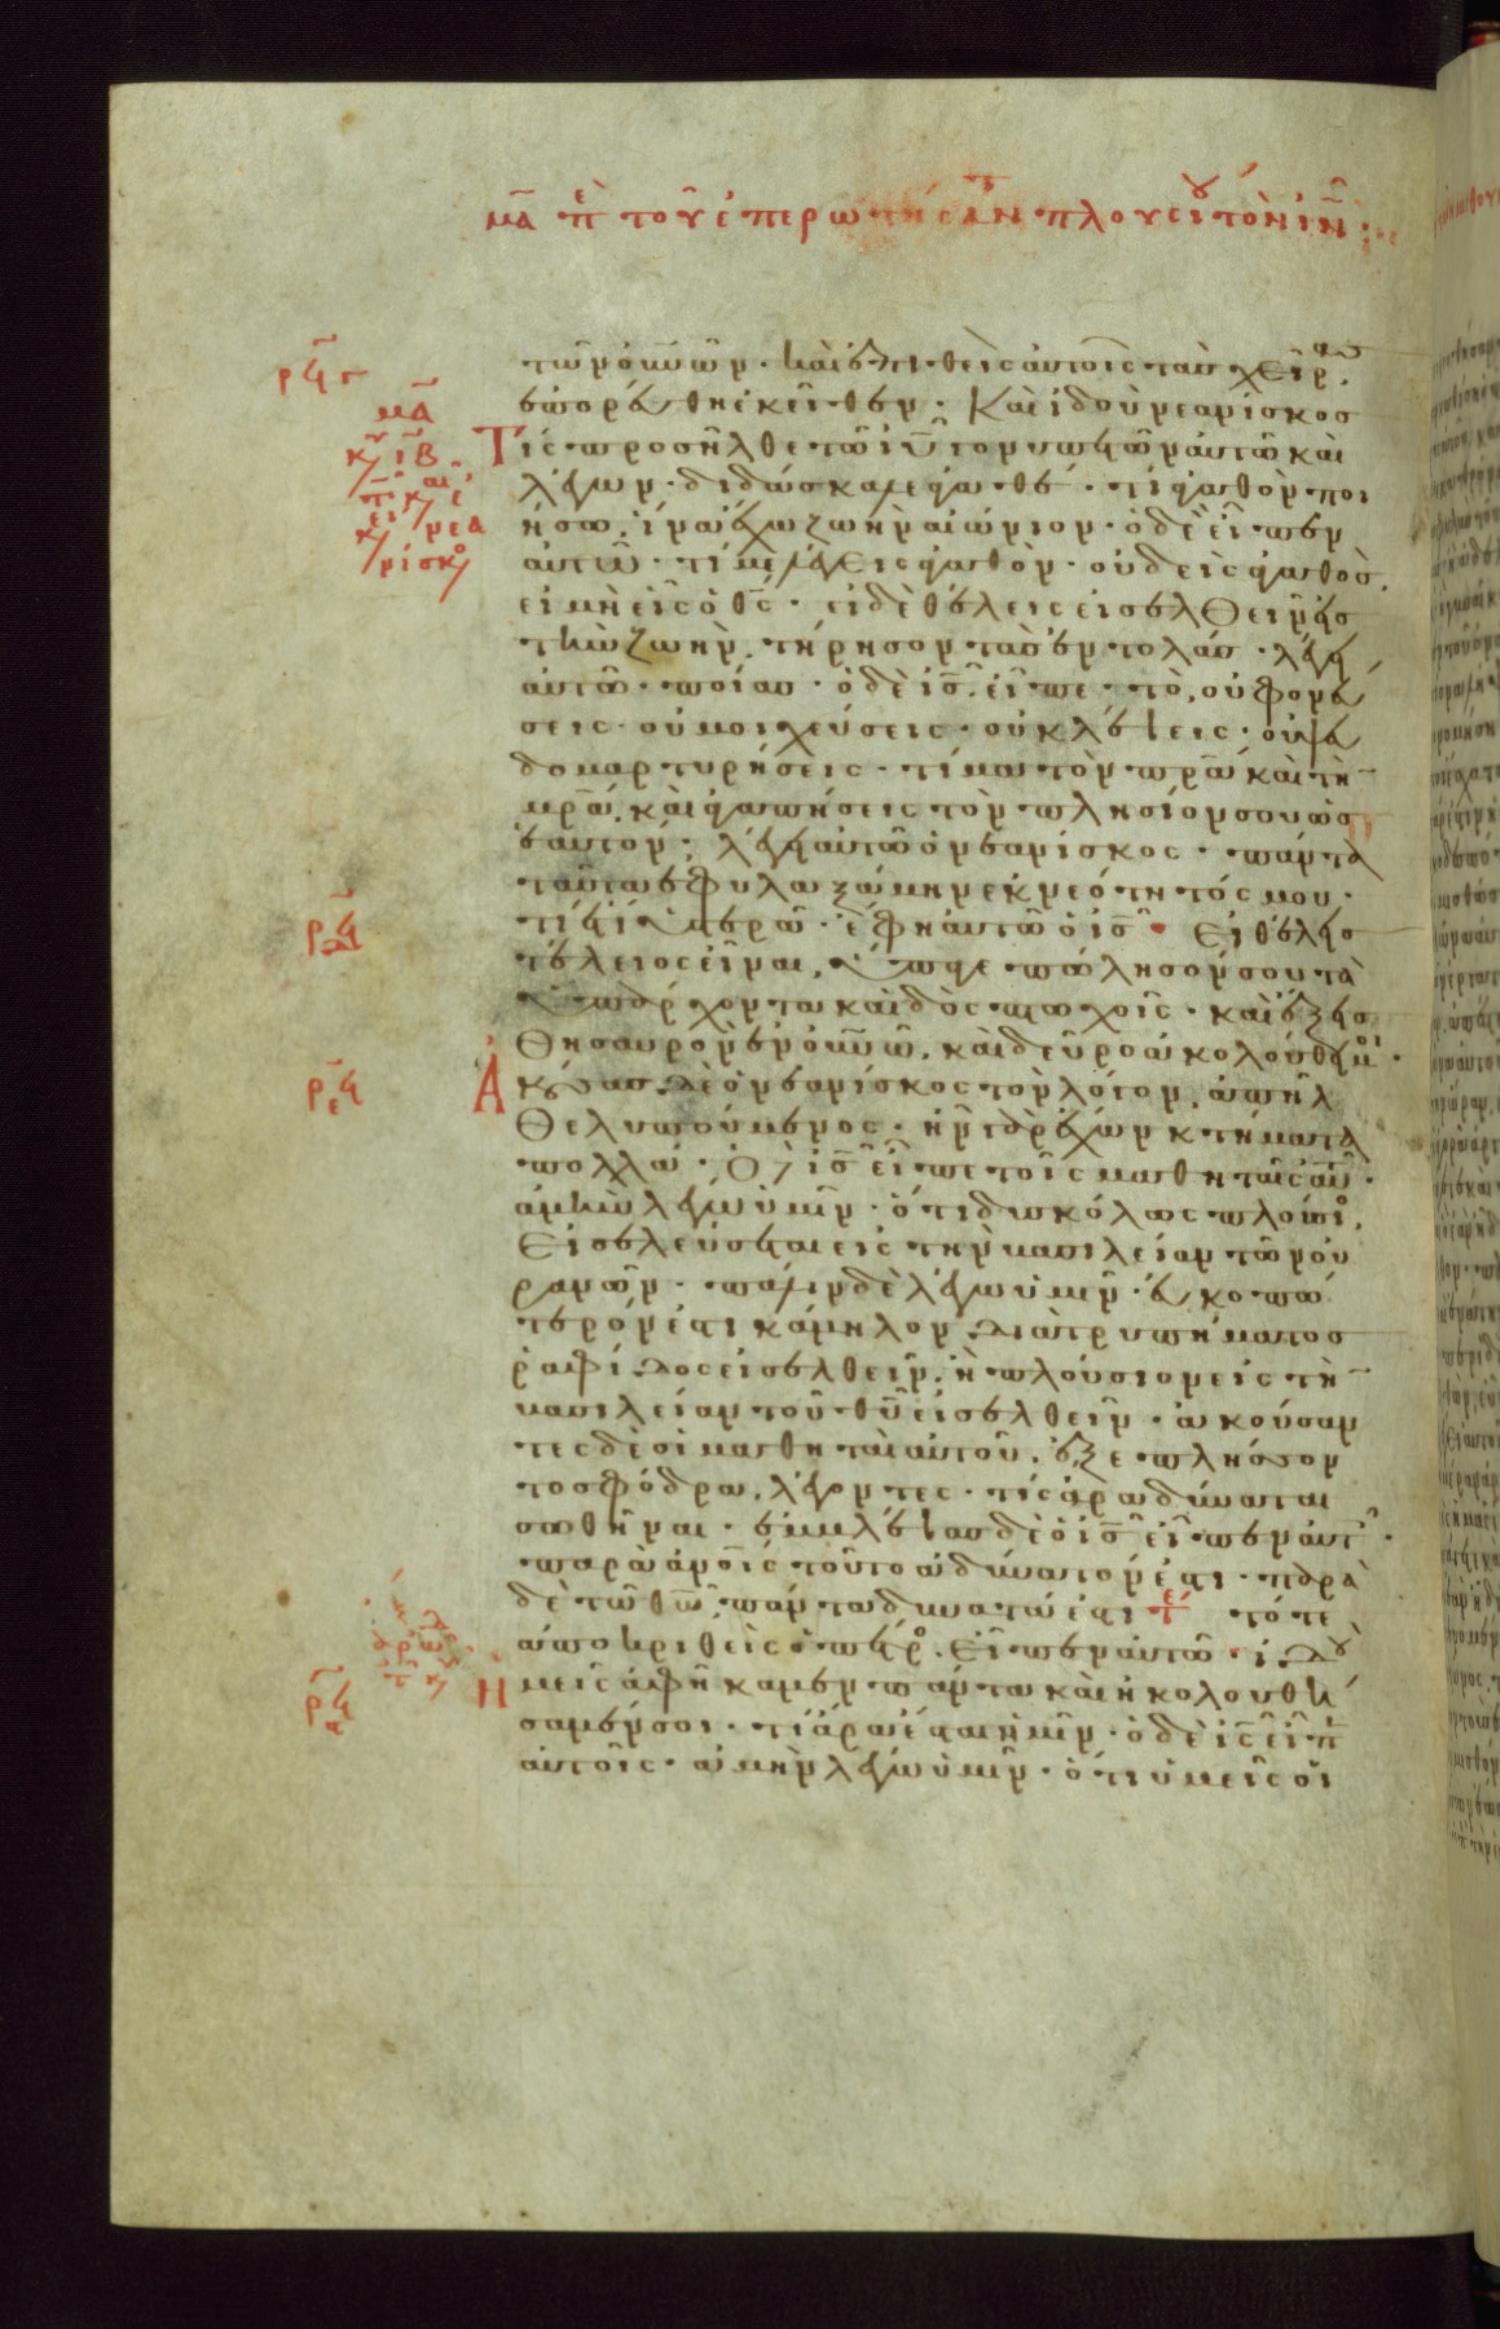 μα πε του επερωτησαν πλουσιου τον ιν:
ρϟγ
τῶν οὐνῶν · καὶ ἐπιθεὶς αὐτοῖς τὰς χεῖρας ·
ἐπορεύθη ἐκεῖθεν · Καὶ ἰδοὺ νεανίσκος
μα
κυ ιβ
Τίς προσῆλθε τῶ ιυ γονυπετῶν αὐτῶ καὶ
λέγων · διδάσκαλε ἀγαθέ · τί ἀγαθὸν ποι
νεα
νίσκος
ήσω, ἵνα ἔχω ζωὴν αἰώνιον · ὁ δὲ εἶπεν
αὐτῶ · τί με λέγεις ἀγαθὸν · οὐδεὶς ἀγαθὸς,
εἰ μὴ εἷς ὁ θς · εἰ δὲ θέλεις εἰσελθεῖν εἰς
τὴν ζωὴν, τήρησον τὰς ἐντολάς · λέγει
αὐτῶ · ποίας · ὁ δὲ ις εἶπε · τὸ, οὐ φονεύ
σεις · οὐ μοιχεύσεις · οὐ κλέψεις · οὐ ψευ
δομαρτυρήσεις · τίμα τὸν πρα καὶ τὴν
μρα, καὶ ἀγαπήσεις τὸν πλησίον σου ὡς
ἑαυτόν · λέγει αὐτῶ ὁ νεανίσκος · πάντα
ταῦτα ἐφυλαξάμην ἐκ νεότητός μου ·
ρϟδ
τί ἔτι ὑστερῶ · ἔφη αὐτῶ ὁ ις · Εἰ θέλεις
τέλειος εἶναι, ὕπαγε πώλησόν σου τὰ
ὑπάρχοντα καὶ δὸς πτωχοῖς · καὶ ἕξεις
θησαυρὸν ἐν οὐνῶ, καὶ δεῦρο ἀκολούθει μοι ·
ρϟε
Ἀκούσας δὲ ὁ νεανίσκος τὸν λόγον, ἀπῆλ
θε λυπούμενος · ἦν γὰρ ἔχων κτήματα
πολλά · Ὁ δὲ ις εἶπε τοῖς μαθηταῖς αὐτοῦ ·
ἀμὴν λέγω ὑμῖν · ὅτι δυσκόλως πλούσιος,
Εἰσελεύσεται εἰς τὴν βασιλείαν τῶν οὐ
ρανῶν · πάλιν δὲ λέγω ὑμῖν · εὐκοπώ
τερόν ἐστι κάμηλον διὰ τρυπήματος
ῥαφίδος εἰσελθεῖν, ἢ πλούσιον εἰς τὴν
βασιλείαν τοῦ θυ εἰσελθεῖν · ἀκούσαν
τες δὲ οἱ μαθηταὶ αὐτοῦ, ἐξεπλήσσον
το σφόδρα, λέγοντες · τίς ἄρα δύναται
σωθῆναι · ἐμβλέψας δὲ ὁ ις εἶπεν αὐτοῖς ·
παρὰ ἀνοις τοῦτο ἀδύνατόν ἐστι · παρὰ
δὲ τῶ θω, πάντα δυνατά ἐστι τε τότε
ἀποκριθεὶς ὁ πέτρος, Εἶπεν αὐτῶ · ἰδοὺ
ρϟ
Ἡμεῖς ἀφήκαμεν πάντα καὶ ἠκολουθή
σαμέν σοι · τί ἄρα ἔσται ἡμῖν · ὁ δὲ ις εἶπεν
αὐτοῖς · ἀμὴν λέγω ὑμῖν · ὅτι ὑμεῖς οἱ